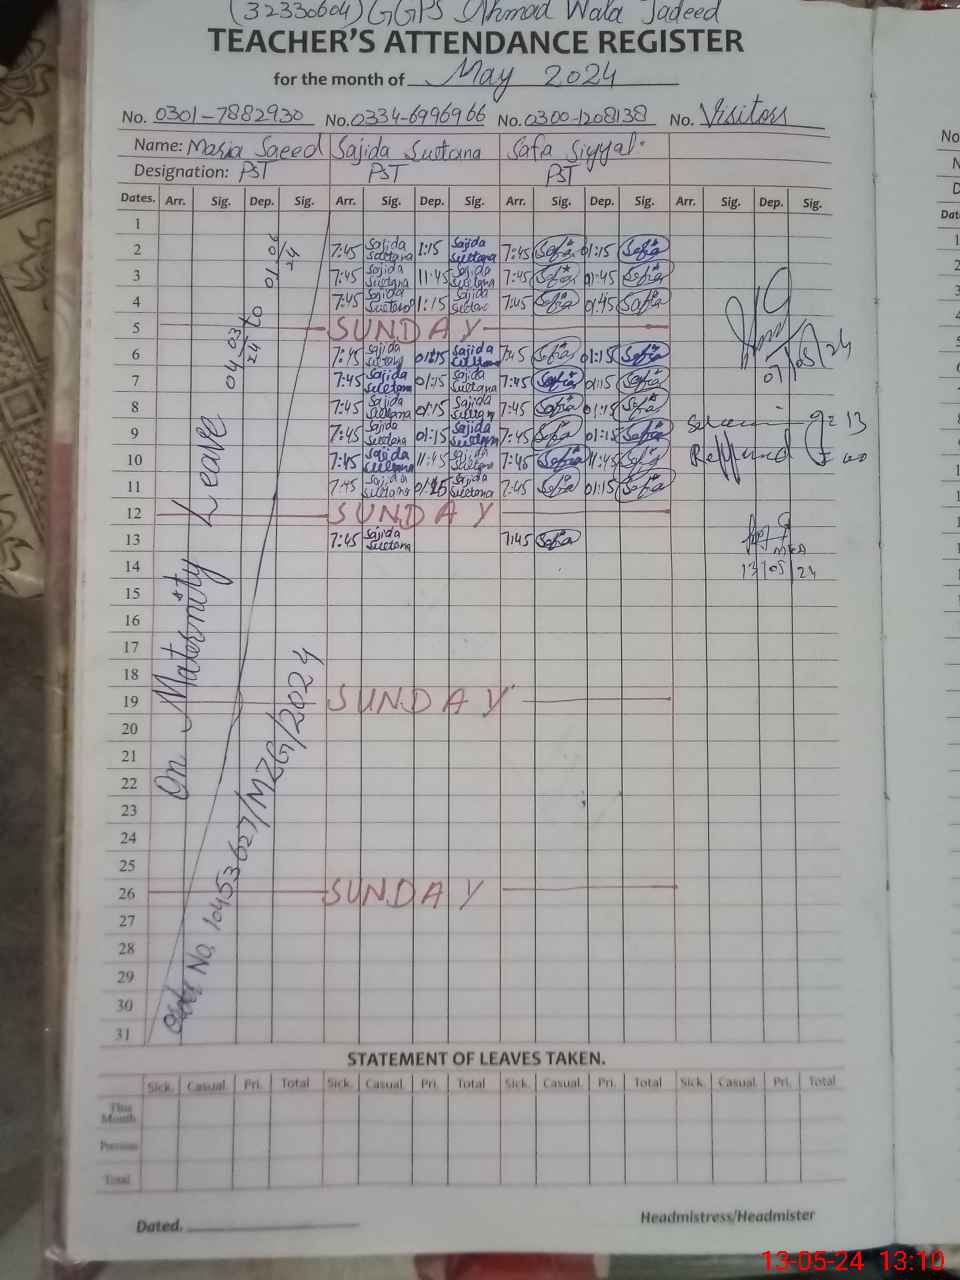 (32330604) GGPS Ahmad Wala Jadeed
TEACHER'S ATTENDANCE REGISTER
for the month of May 2024
No. 0301-7882930 No. 0334-6996966 No. 0300-1208138 No. Visitors
Name: Maria Saeed Sajida Sultana Safa Siyyal
Designation: PST PST PST
Dates. Arr. Sig. Dep. Sig. Arr. Sig. Dep. Sig. Arr. Sig. Dep. Sig. Arr. Sig. Dep. Sig.
1
2 7:45 Sajida Sultana 1:15 Sajida Sultana 7:45 Safia 01:15 Safia
3 7:45 Sajida Sultana 11:45 Sajida Sultana 7:45 Safia 01:45 Safia
4 7:45 Sajida Sultana 1:15 Sajida Sultana 7:45 Safia 01:45 Safia
5 SUNDAY
6 7:45 Sajida Sultana 01:15 Sajida Sultana 7:45 Safia 01:15 Safia
7 7:45 Sajida Sultana 01:15 Sajida Sultana 7:45 Safia 01:15 Safia
8 7:45 Sajida Sultana 01:15 Sajida Sultana 7:45 Safia 01:15 Safia
9 7:45 Sajida Sultana 01:15 Sajida Sultana 7:45 Safia 01:15 Safia
10 7:45 Sajida Sultana 11:45 Sajida Sultana 7:45 Safia 11:45 Safia
11 7:45 Sajida Sultana 01:15 Sajida Sultana 7:45 Safia 01:15 Safia
12 SUNDAY
13 7:45 Sajida Sultana 7:45 Safia
14
15
16
17
18
19 SUNDAY
20
21
22
23
24
25
26 SUNDAY
27
28
29
30
31
On Maternity Leave
04-03/24 to 01-06/24
Order No. 10453627/MZG/2024
07/05/24
MEA
13/05/24
STATEMENT OF LEAVES TAKEN.
Sick. Casual. Pri. Total Sick. Casual. Pri. Total Sick. Casual. Pri. Total Sick. Casual. Pri. Total
This Month
Previous
Total
Dated. Headmistress/Headmister
No
N
D
Dat
13-05-24 13:10